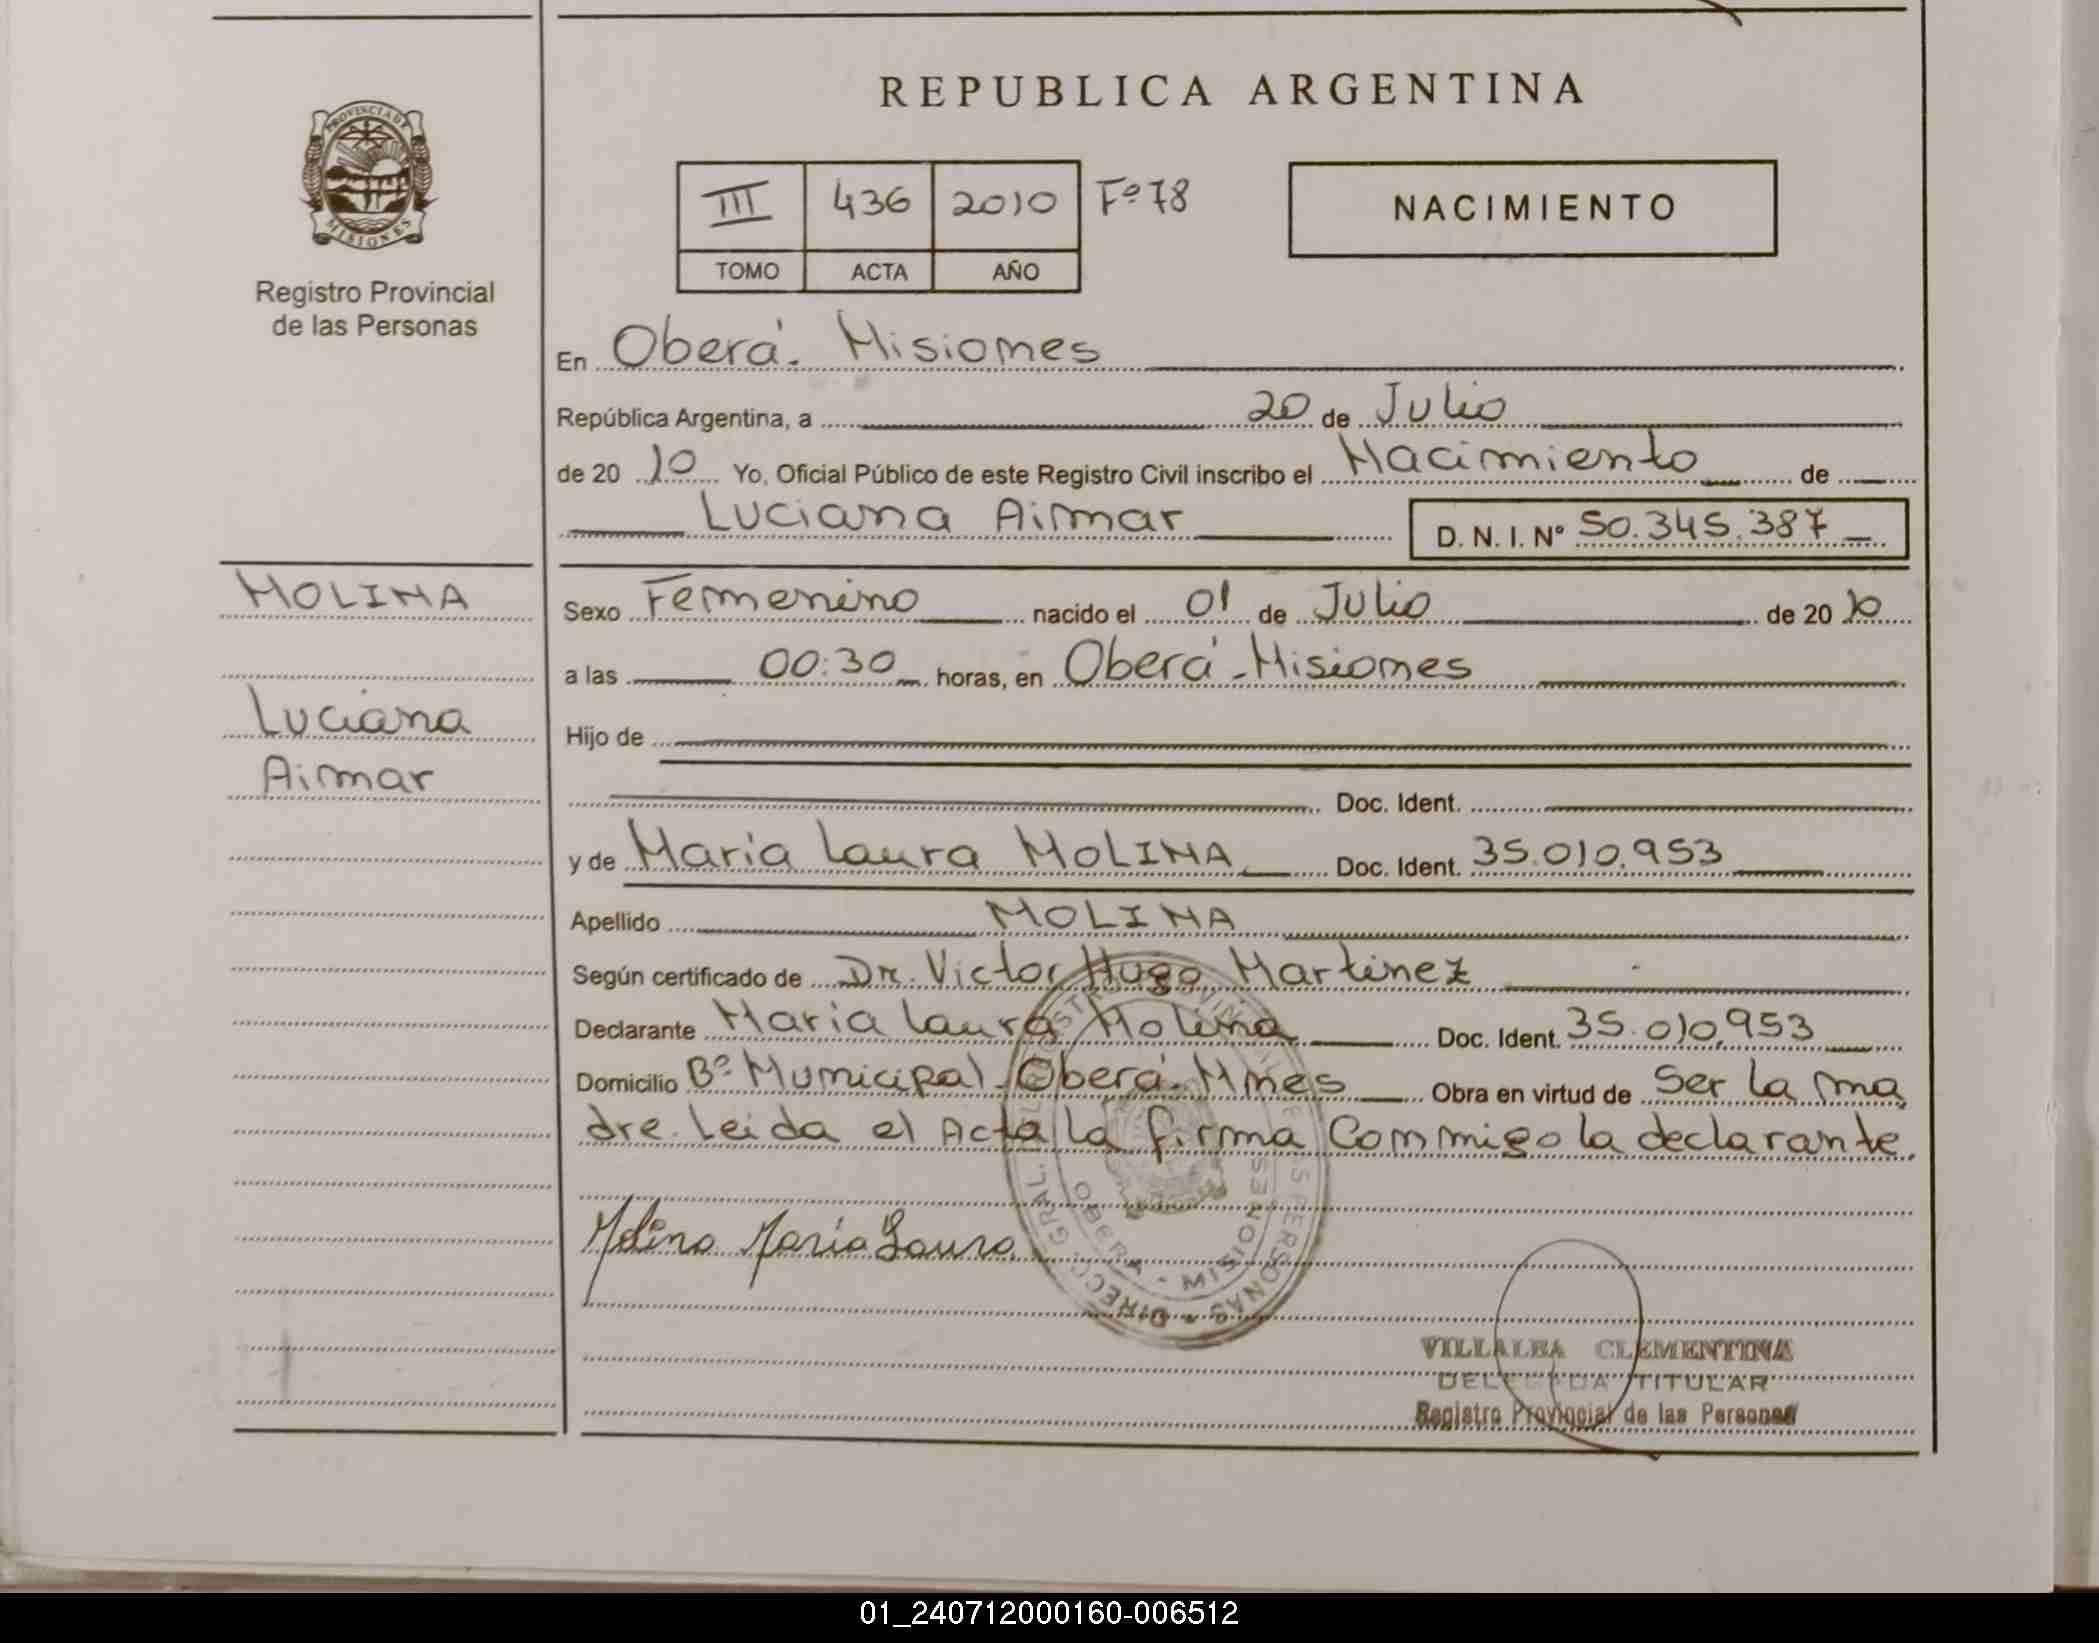 REPUBLICA ARGENTINA
PROVINCIA DE
MISIONES
Registro Provincial
de las Personas
III 436 2010 Fº 78
TOMO ACTA AÑO
NACIMIENTO
En Oberá. Misiones
República Argentina, a 20 de Julio
de 20 10 Yo, Oficial Público de este Registro Civil inscribo el Nacimiento de
Luciana Aimar D. N. I. Nº 50.345.387
MOLINA
Luciana
Aimar
Sexo Femenino nacido el 01 de Julio de 20 10
a las 00:30 horas, en Oberá - Misiones
Hijo de
Doc. Ident.
y de María Laura MOLINA Doc. Ident. 35.010.953
Apellido MOLINA
Según certificado de Dr. Victor Hugo Martinez
Declarante María Laura Molina Doc. Ident. 35.010.953
Domicilio Bº Municipal. Oberá. Mnes Obra en virtud de Ser la ma
dre. Leida el Acta la firma Conmigo la declarante.
Molina María Laura
OBERA - MISIONES
VILLALBA CLEMENTINA
DELEGADA TITULAR
Registro Provincial de las Personas
01_240712000160-006512